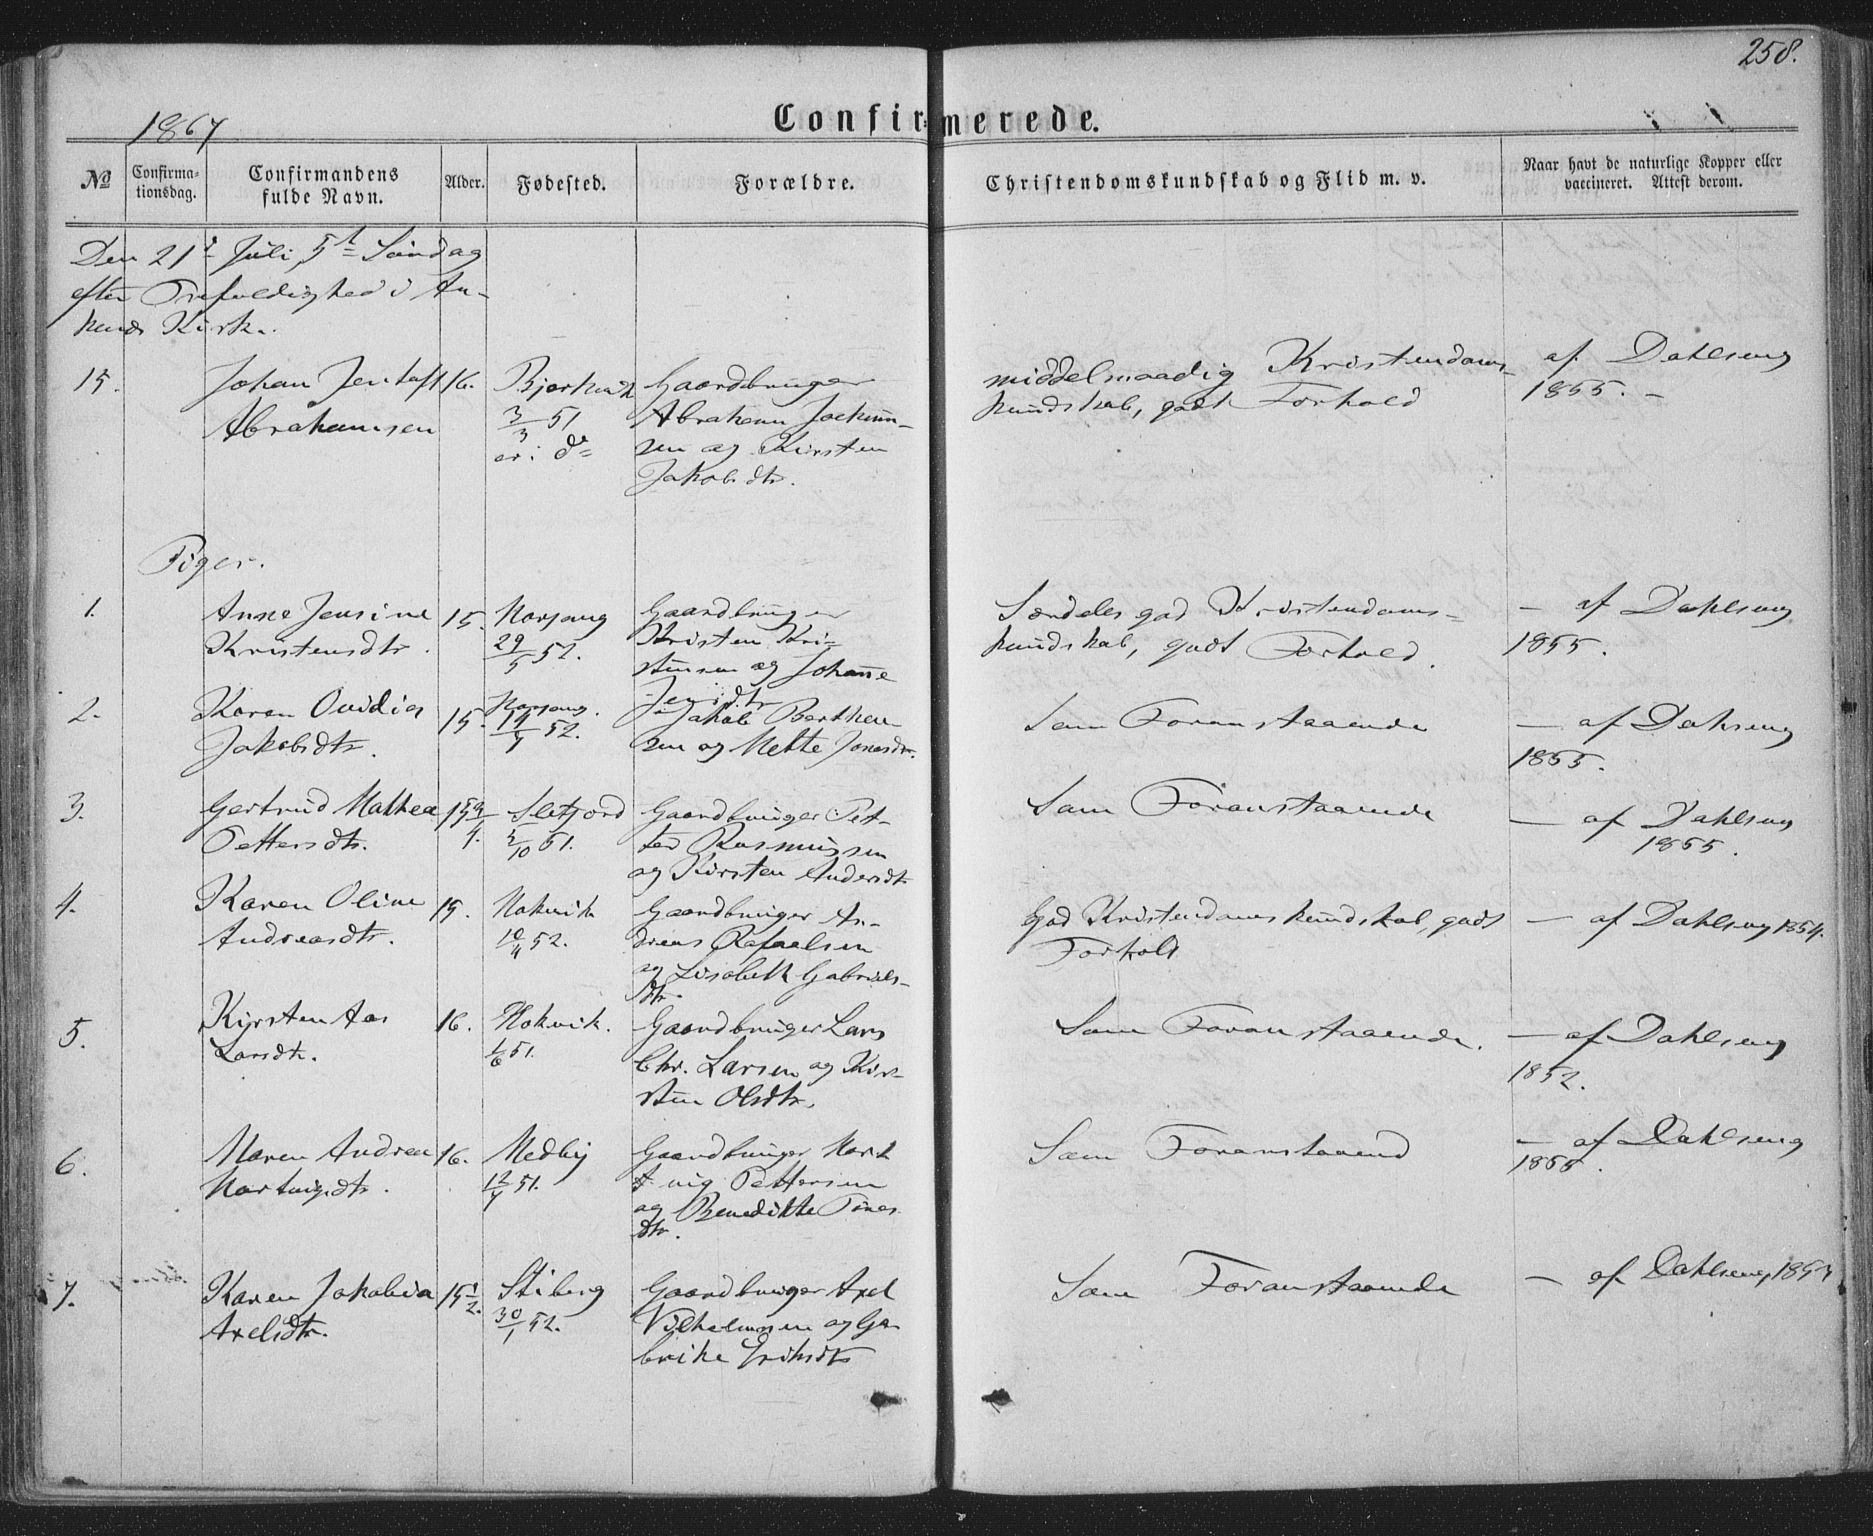 258.
1867
Confirmerede.
No
Confirma-
tionsdag.
Confirmandens
fulde Navn.
Alder.
Fødested.
Forældre.
Christendomskundskab og Flid m. v.
Naar havt de naturlige Kopper eller
vaccineret. Attest derom.
Den 21de Juli, 5te Søndag
efter Trefoldighed i An-
kenes Kirke.
15.
Johan Jentoft
Abrahamsen
16.
Bjerkvik
3/3 51
er: do
Gaardbruger
Abraham Joakim-
sen og Kirsten
Jakobsdtr.
middelmaadig Kristendoms-
kundskab, godt Forhold
af Dahlseng
1855. –
Piger.
1.
Anne Jensine
Kristensdtr.
15.
29/5 52.
Gaardbruger
Kristen Kri-
stensen og Johanne
Jensdtr
Særdeles god Kristendoms-
kundskab, godt Forhold.
– af Dahlseng
1855.
2.
Karen Ovidia
Jakobsdtr.
15.
52.
Jakob Berthen-
sen og Mette Jonasdtr.
Som Foranstaaende
– af Dahlseng
1855.
3.
Gertrud Mathea
Pettersdtr.
15 3/4.
Sletjord
51.
Gaardbruger Pet-
ter Rasmussen
og Kirsten Andersdtr
Som Foranstaaende
– af Dahlseng
1855.
4.
Karen Oline
Andreasdtr.
15.
10/4 52.
Gaardbruger An-
dreas Rafaelsen
og Lisabeth Gabriels-
dtr.
God Kristendomskundskab, godt
Forhold
– af Dahlseng 1854.
5.
Kirsten Aas
Larsdtr.
16.
1/6 51.
Gaardbruger Lars
Chr. Larsen og Kir-
sten Olsdtr.
Som Foranstaaende.
– af Dahlseng
1852.
6.
Maren Andrea
Hartvigsdtr.
16.
Medby
51.
Gaardbruger Hart
vig Pettersen
og Benedikte
dtr.
Som Foranstaaend
– af Dahlseng
1855.
7.
Karen Jakobia
Axelsdtr.
15 1/2.
Stiberg
30/1 52.
Gaardbruger Axel
Vilhelmsen og Ga-
brike
Som Foranstaaende
– af Dahlseng 1853